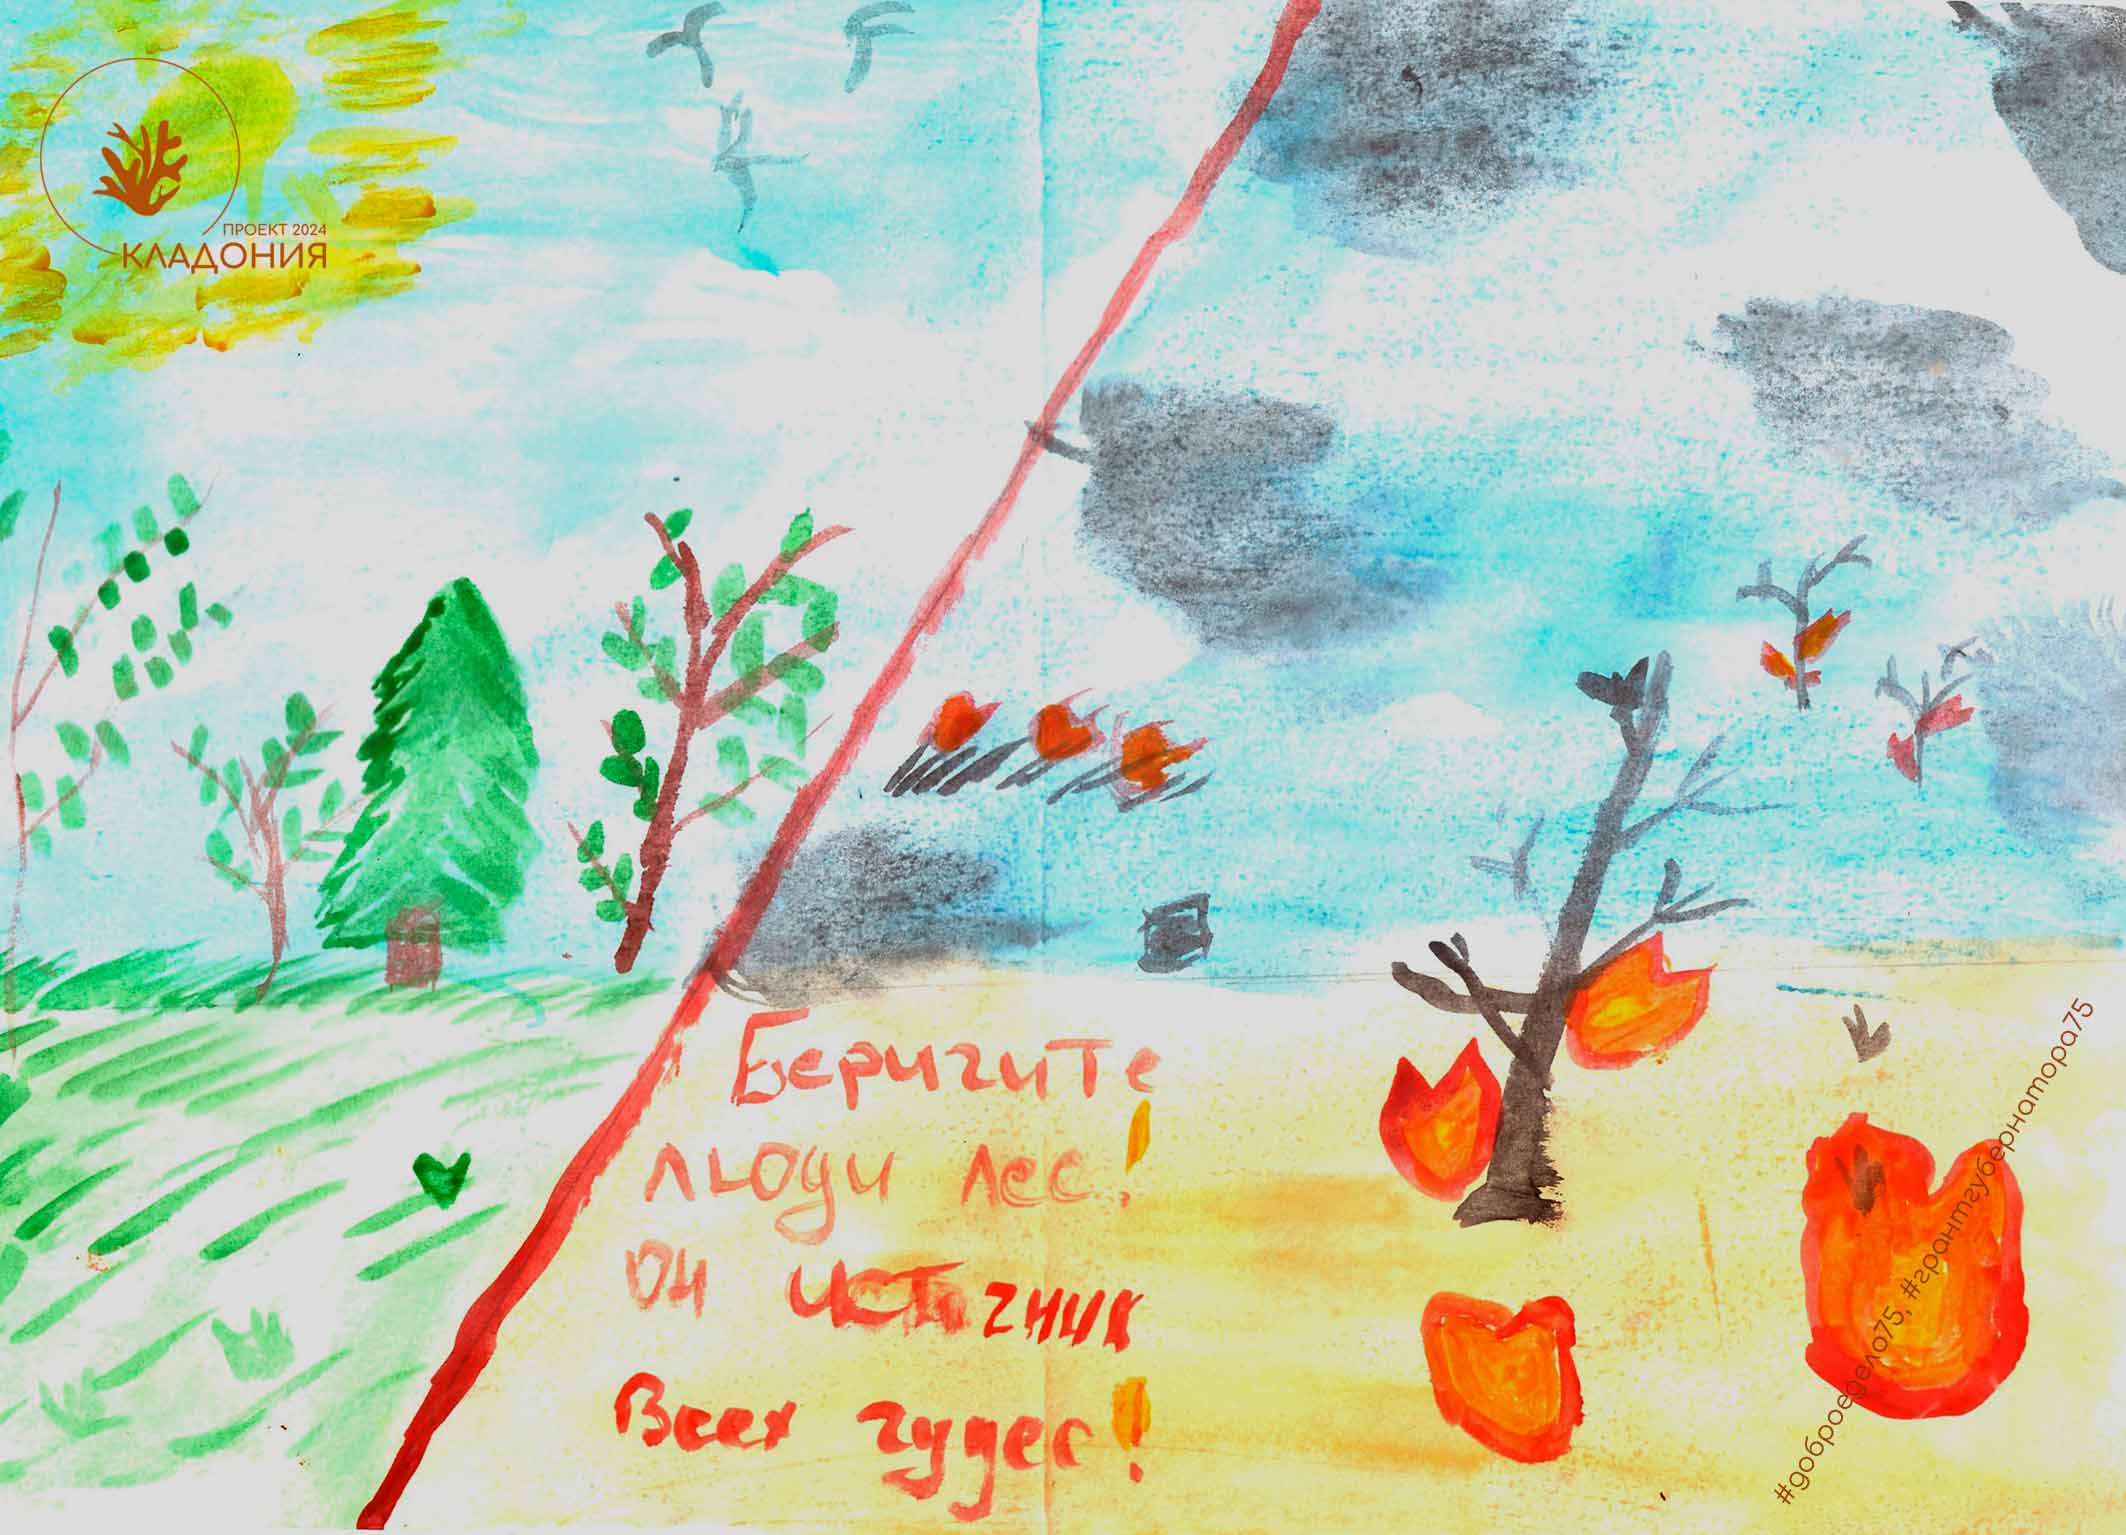 ПРОЕКТ 2024
КЛАДОНИЯ
Беригите
люди лес!
он источник
Всех чудес!
#доброедело75, #грантгубернатора75